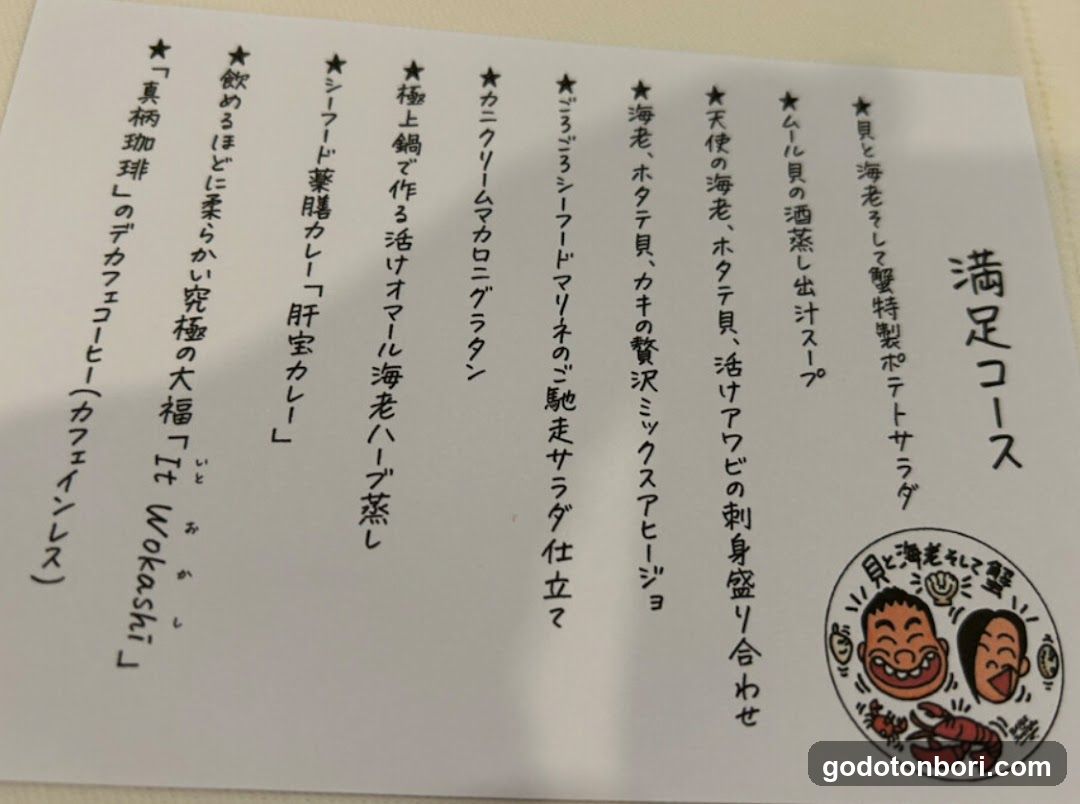 満足コース
★貝と海老そして蟹特製ポテトサラダ
★ムール貝の酒蒸し出汁スープ
★天使の海老、ホタテ貝、活けアワビの刺身盛り合わせ
★海老、ホタテ貝、カキの贅沢ミックスアヒージョ
★ごろごろシーフードマリネのご馳走サラダ仕立て
★カニクリームマカロニグラタン
★極上鍋で作る活けオマール海老ハーブ蒸し
★シーフード薬膳カレー「肝宝カレー」
★飲めるほどに柔らかい究極の大福「It Wokashi」
いと おかし
★「真柄珈琲」のデカフェコーヒー(カフェインレス)
貝と海老そして蟹
godotonbori.com